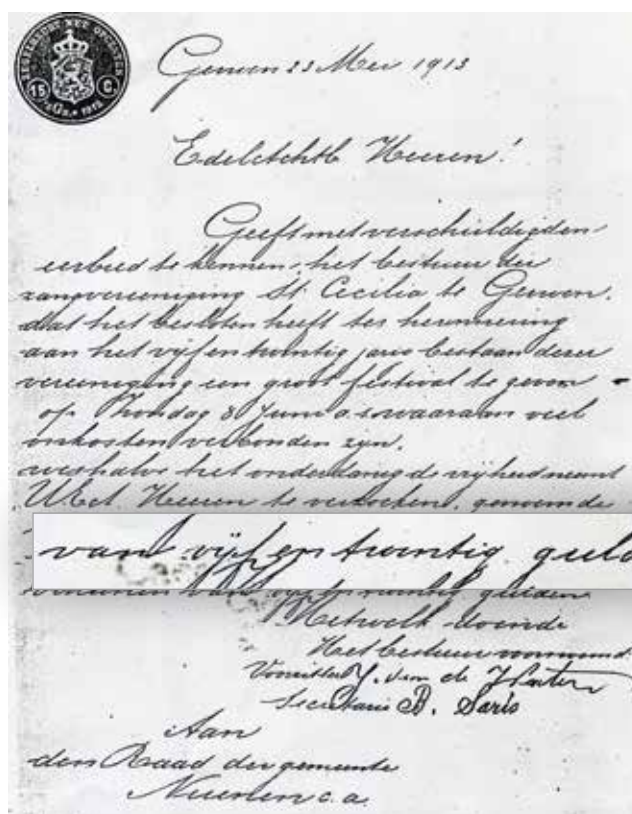 ZEGELRECHT MET OPCENTEN
15 C.
Gerwen 23 Mei 1913
Edelachtb Heeren!
Geeft met verschuldigden
eerbied te kennen, het bestuur der
zangvereeniging St. Cecilia te Gerwen,
dat het besloten heeft ter herinnering
aan het vijf en twintig jarig bestaan dezer
vereeniging een groot festival te geven
op Zondag 8 Juni a.s. waaraan veel
onkosten verbonden zijn.
weshalve het onderdanig de vrijheid neemt
UEd. Heeren te verzoeken, genoemde
van vijf en twintig guld
van vijf en twintig gulden
'Hetwelk doende
Het bestuur voornoemd
Voorzitter J. van de Water
Secretaris B. Saris
Aan
den Raad der gemeente
Nuenen c.a.